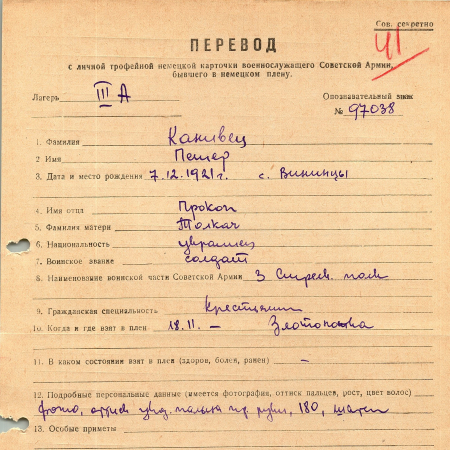 Сов. секретно
41
ПЕРЕВОД
с личной трофейной немецкой карточки военнослужащего Советской Армии,
бывшего в немецком плену.
Лагерь III А
Опознавательный знак
№ 97038
1. Фамилия Канивец
2 Имя Петер
3. Дата и место рождения 7.12.1921г. с. Вининцы
4. Имя отца Прокоп
5. Фамилия матери Толкач
6. Национальность украинец
7. Воинское звание солдат
8. Наименование воинской части Советской Армии 3 Стрелк. полк
9. Гражданская специальность Крестьянин
10. Когда и где взят в плен 18.11. — Злотоповка
11. В каком состоянии взят в плен (здоров, болен, ранен) –
12. Подробные персональные данные (имеется фотография, оттиск пальцев, рост, цвет волос)
фото, оттиск указ. пальца пр. руки, 180, шатен
13. Особые приметы